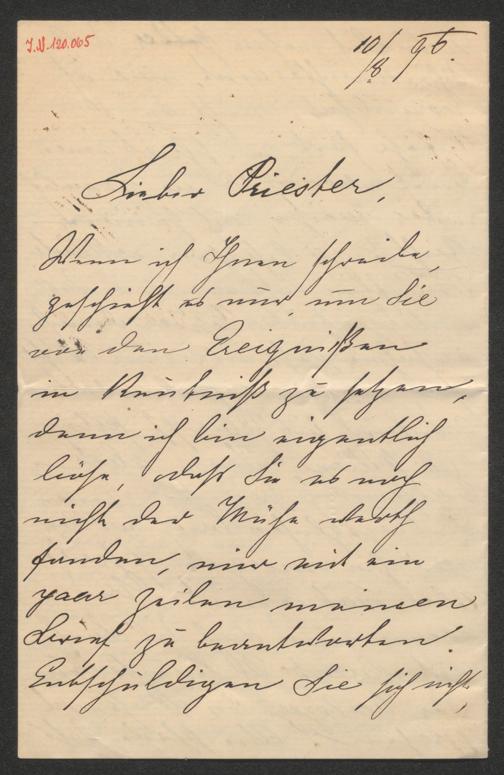 J.N. 120.065
10/8 95.
Lieber Priester,
Wenn ich Ihnen schreibe,
geschieht es nur, um Sie
von den Ereignißen
in Kentniß zu setzen,
denn ich bin eigentlich
böse, daß Sie es noch
nicht der Mühe werth
fanden, mir mit ein
paar Zeilen meinen
Brief zu beantworten.
Entschuldigen Sie sich nicht,